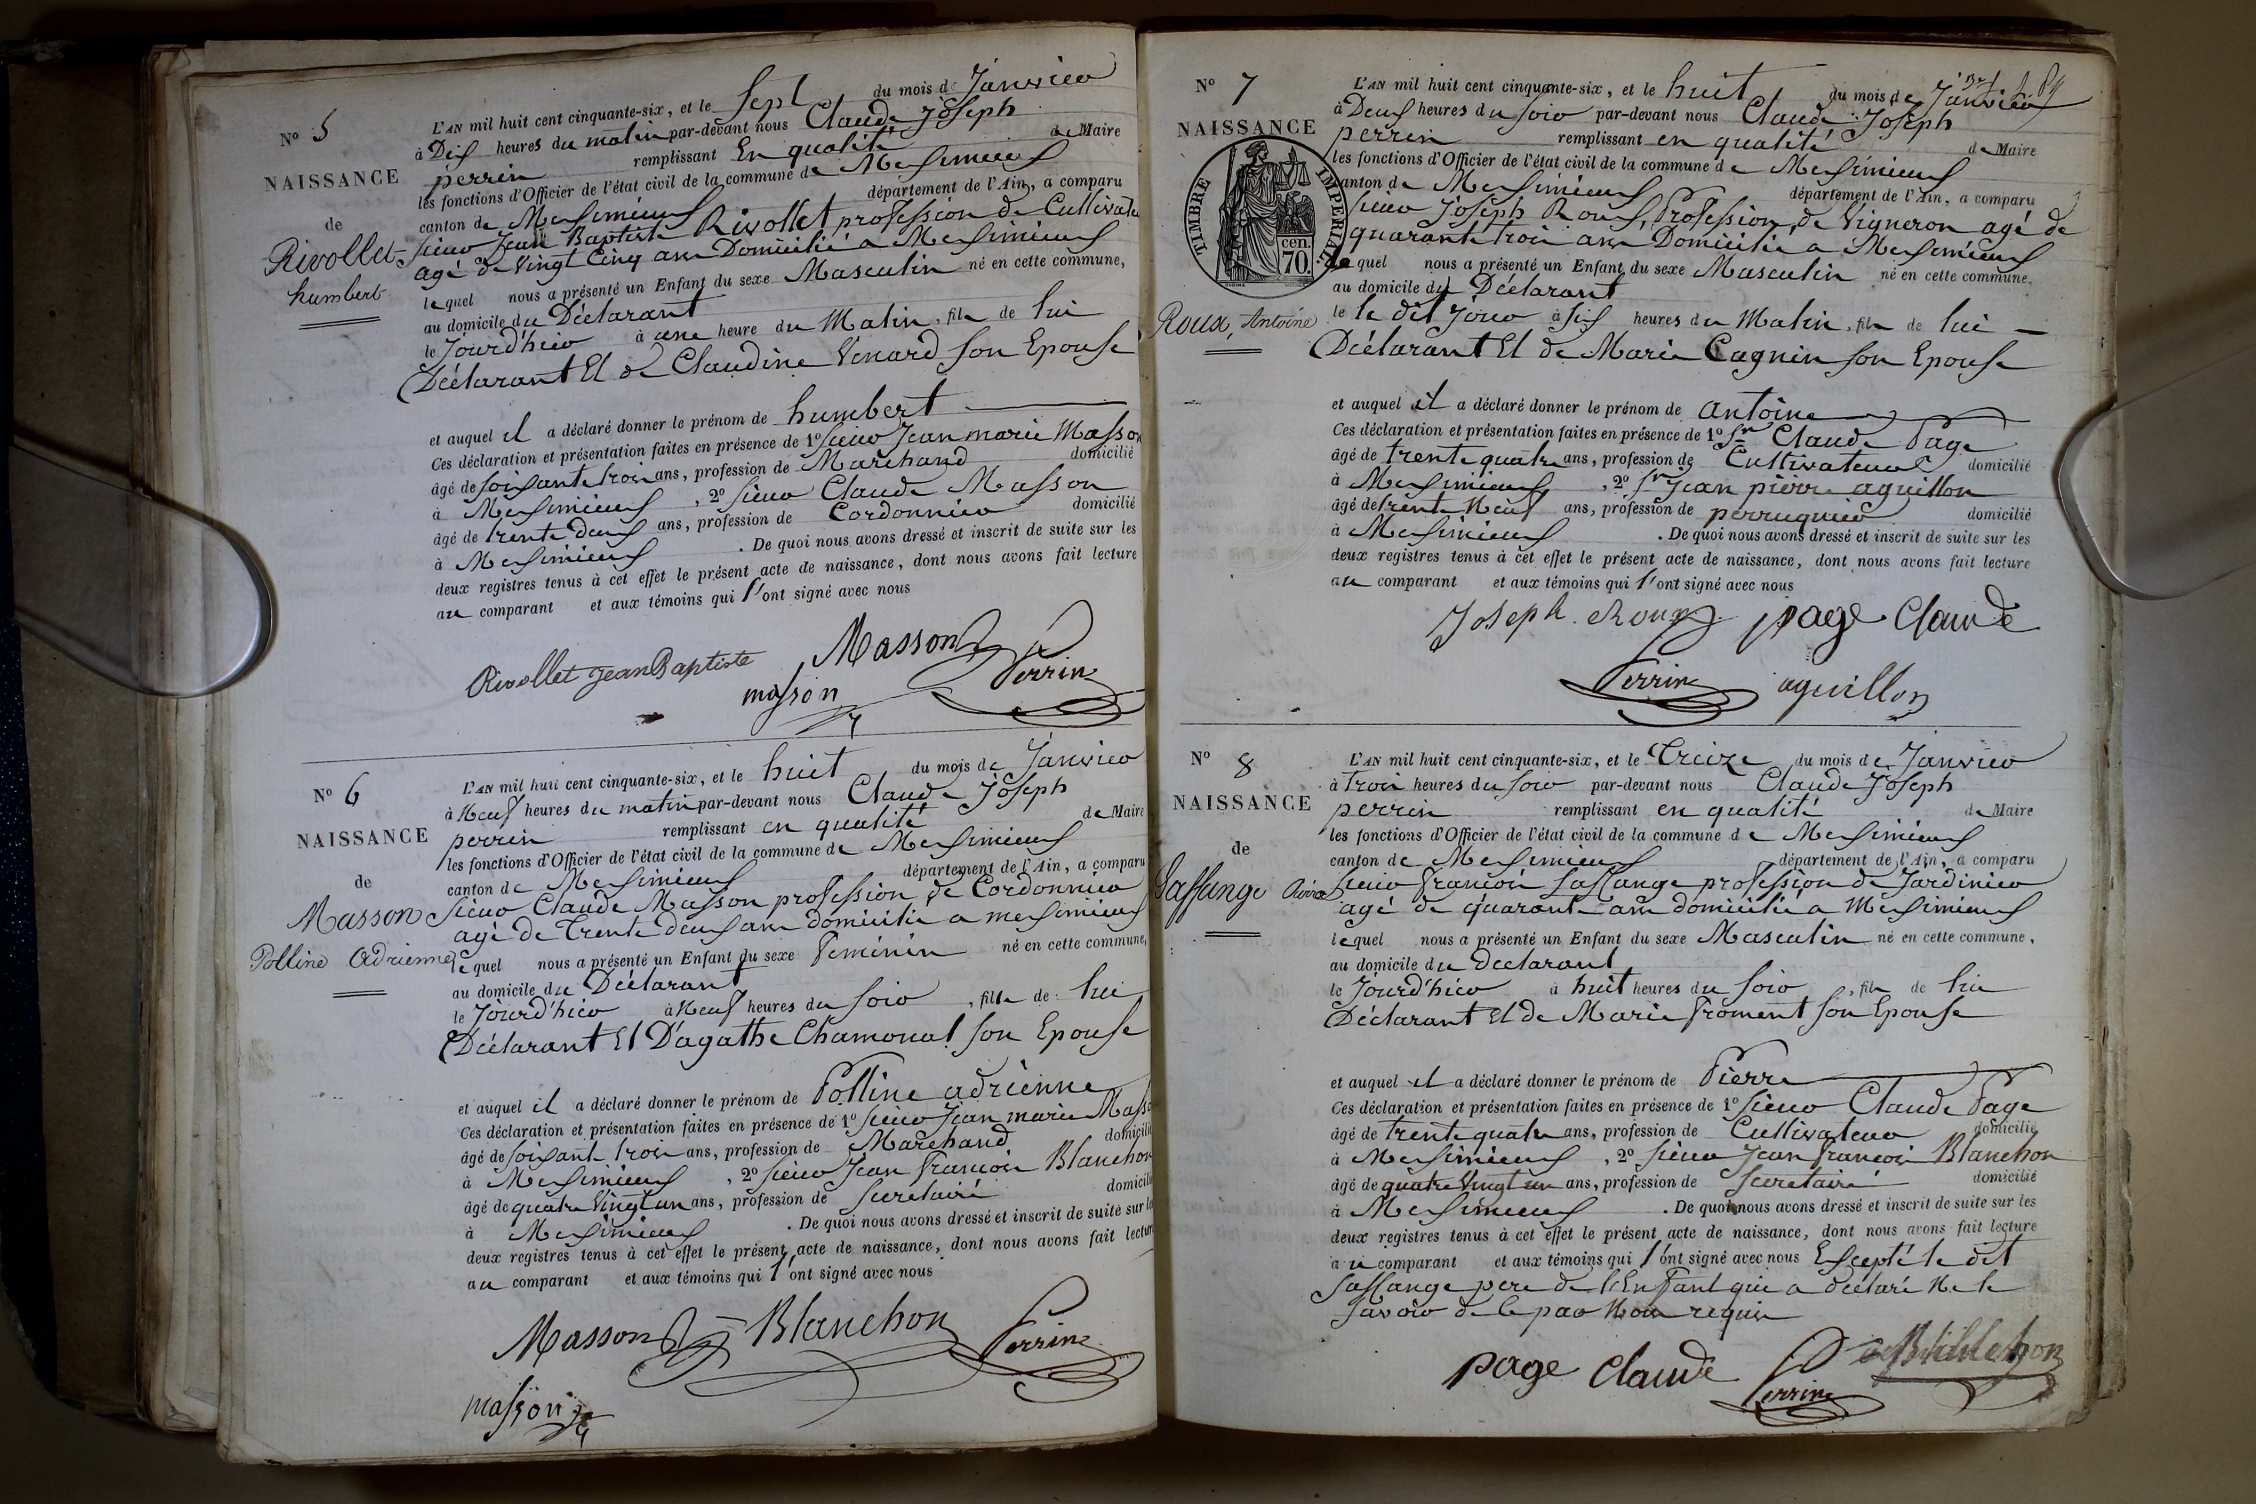 N° 5
NAISSANCE
de
Rivollet
humbert
L'AN mil huit cent cinquante-six, et le Sept du mois de Janvier
à Dix heures du matin par-devant nous Claude Joseph
perrin remplissant En qualité de Maire
les fonctions d'Officier de l'état civil de la commune de Meximieux
canton de Meximieux département de l'Ain, a comparu
Sieur Jean Baptiste Rivollet profession de Cultivateur
agé de Vingt Cinq ans Domicilié a Meximieux
lequel nous a présenté un Enfant du sexe Masculin né en cette commune,
au domicile du Déclarant
le Jourd'hier à une heure du Matin, fils de lui
Déclarant Et de Claudine Venard son Epouse
et auquel il a déclaré donner le prénom de humbert
Ces déclaration et présentation faites en présence de 1° Sieur Jean marie Masson
âgé de soixante trois ans, profession de Marchand domicilié
à Meximieux, 2° Sieur Claude Masson
âgé de trente deux ans, profession de Cordonnier domicilié
à Meximieux. De quoi nous avons dressé et inscrit de suite sur les
deux registres tenus à cet effet le présent acte de naissance, dont nous avons fait lecture
au comparant et aux témoins qui l'ont signé avec nous
Rivollet Jean Baptiste Masson Perrin
masson
N° 6
NAISSANCE
de
Masson
Polline Adrienne
L'AN mil huit cent cinquante-six, et le huit du mois de Janvier
à Neuf heures du matin par-devant nous Claude Joseph
perrin remplissant en qualité de Maire
les fonctions d'Officier de l'état civil de la commune de Meximieux
canton de Meximieux département de l'Ain, a comparu
Sieur Claude Masson profession de Cordonnier
agé de Trente deux ans domicilié a meximieux
lequel nous a présenté un Enfant du sexe Feminin né en cette commune,
au domicile du Déclarant
le Jourd'hier à Neuf heures du Soir, fille de lui
Déclarant Et D'agathe Chamonal son Epouse
et auquel il a déclaré donner le prénom de Polline adrienne
Ces déclaration et présentation faites en présence de 1° Sieur Jean marie Masso
âgé de soixante trois ans, profession de Marchand domicilié
à Meximieux, 2° Sieur Jean François Blanchon
âgé de quatre Vingt un ans, profession de Secretaire domicilié
à Meximieux. De quoi nous avons dressé et inscrit de suite sur les
deux registres tenus à cet effet le présent acte de naissance, dont nous avons fait lecture
au comparant et aux témoins qui l'ont signé avec nous
Masson Blanchon Perrin
masson
N° 7
NAISSANCE
TIMBRE IMPERIAL
70 cen.
Roux, Antoine
L'AN mil huit cent cinquante-six, et le huit du mois de Janvier
à Deux heures du soir par-devant nous Claude Joseph
perrin remplissant en qualité de Maire
les fonctions d'Officier de l'état civil de la commune de Meximieux
canton de Meximieux département de l'Ain, a comparu
Sieur Joseph Roux, Profession de Vigneron agé de
quarante trois ans Domicilié a Meximieux
lequel nous a présenté un Enfant du sexe Masculin né en cette commune,
au domicile du Déclarant
le le dit Jour à six heures du Matin, fils de lui
Déclarant Et de Marie Cagnin son Epouse
et auquel il a déclaré donner le prénom de antoine
Ces déclaration et présentation faites en présence de 1° Sr Claude Page
âgé de trente quatre ans, profession de Cultivateur domicilié
à Meximieux, 2° Sr Jean pierre aguillon
âgé de trente Neuf ans, profession de perruquier domicilié
à Meximieux. De quoi nous avons dressé et inscrit de suite sur les
deux registres tenus à cet effet le présent acte de naissance, dont nous avons fait lecture
au comparant et aux témoins qui l'ont signé avec nous
Joseph Roux page Claude
Perrin aguillon
N° 8
NAISSANCE
de
Laffange Pierre
L'AN mil huit cent cinquante-six, et le Treize du mois de Janvier
à trois heures du soir par-devant nous Claude Joseph
perrin remplissant en qualité de Maire
les fonctions d'Officier de l'état civil de la commune de Meximieux
canton de Meximieux département de l'Ain, a comparu
Sieur François Laffange profession de Jardinier
agé de quarante ans domicilié a Meximieux
lequel nous a présenté un Enfant du sexe Masculin né en cette commune,
au domicile du declarant
le Jourd'hier à huit heures du soir, fils de lui
Déclarant Et de Marie Froment son Epouse
et auquel il a déclaré donner le prénom de Pierre
Ces déclaration et présentation faites en présence de 1° Sieur Claude Page
âgé de trente quatre ans, profession de Cultivateur domicilié
à Meximieux, 2° Sieur Jean François Blanchon
âgé de quatre Vingt un ans, profession de Secretaire domicilié
à Meximieux. De quoi nous avons dressé et inscrit de suite sur les
deux registres tenus à cet effet le présent acte de naissance, dont nous avons fait lecture
au comparant et aux témoins qui l'ont signé avec nous Excepté le dit
Laffange pere de l'Enfant qui a déclaré Ne le
savoir de ce par Nous requis
page Claude Perrin Blanchon